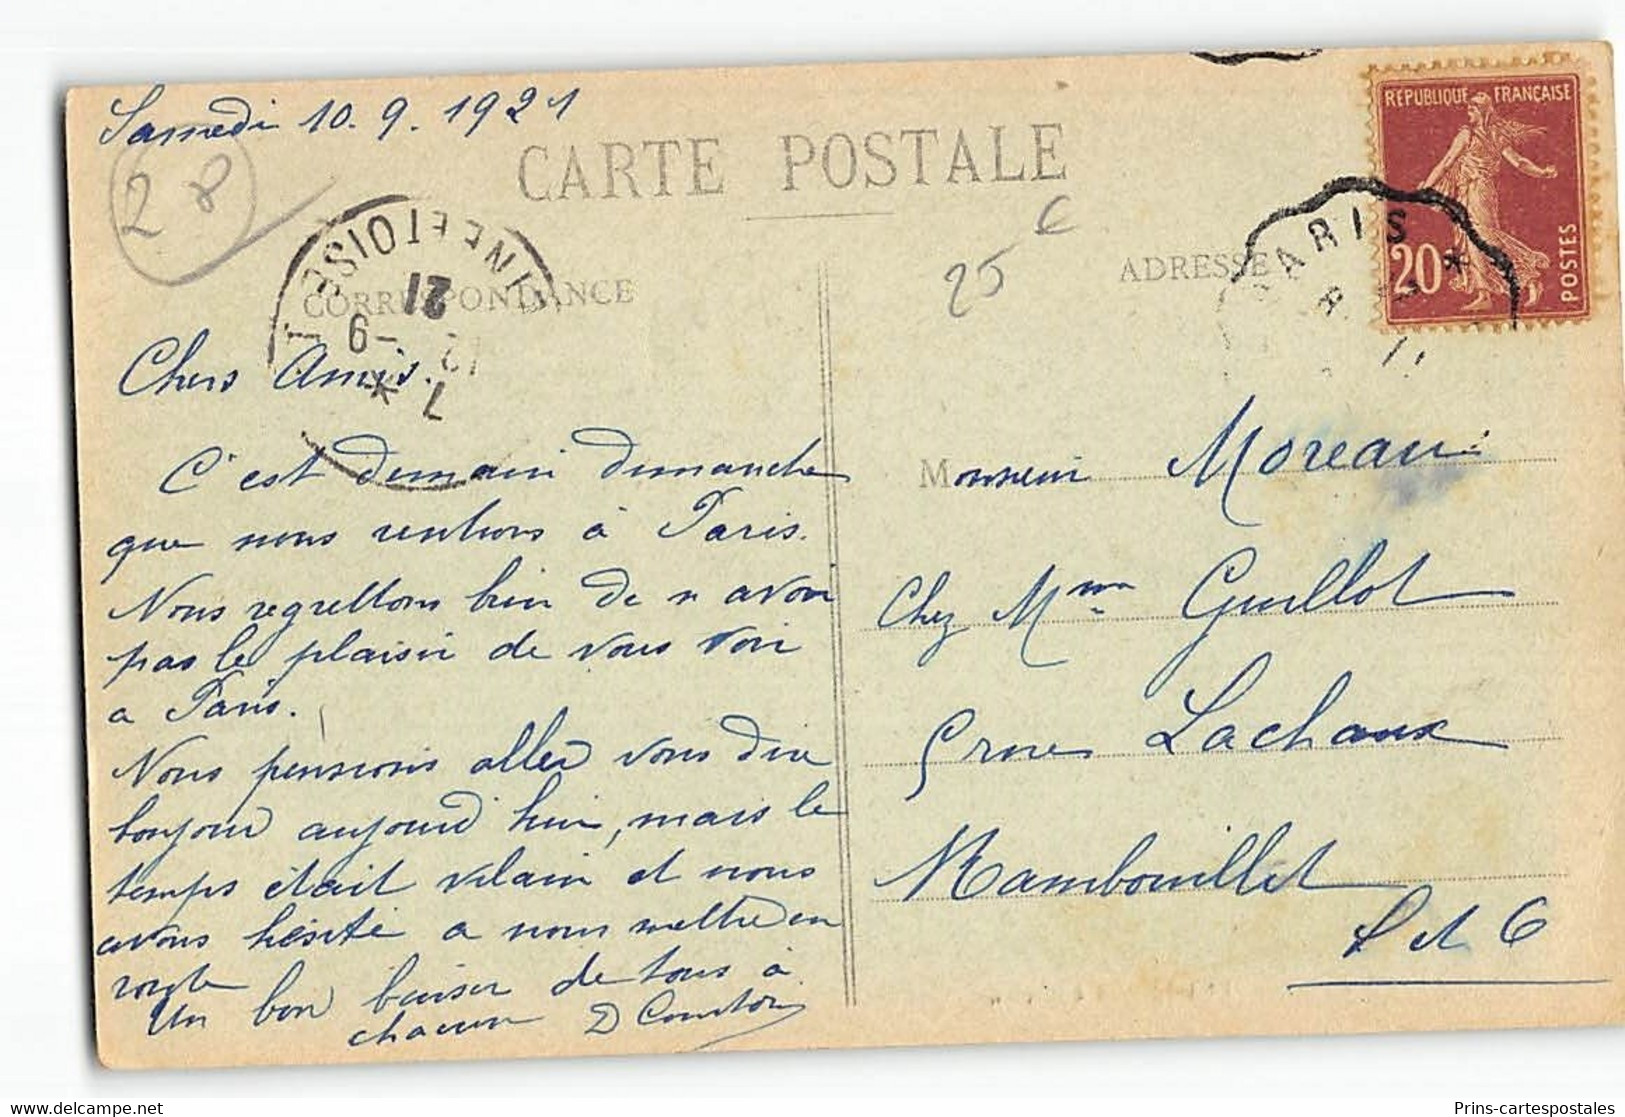 Samedi 10. 9. 1921
28
CARTE POSTALE
CORRESPONDANCE
ADRESSE
25
€
REPUBLIQUE FRANÇAISE
20
POSTES
PARIS
ET OISE
7
9
21
Chers Amis.
C'est demain dimanche
que nous rentrons à Paris.
Nous regrettons bien de n avoir
pas le plaisir de vous voir
a Paris.
Nous pensions aller vous dire
bonjour aujourd hui, mais le
temps était vilain et nous
avons hésité a nous mettre en
route
Un bon baiser de tous à
chacun D
Monsieur Moreau
Chez Mme Guillot
rue Lachaux
Rambouillet
S et O
Prins-cartespostales